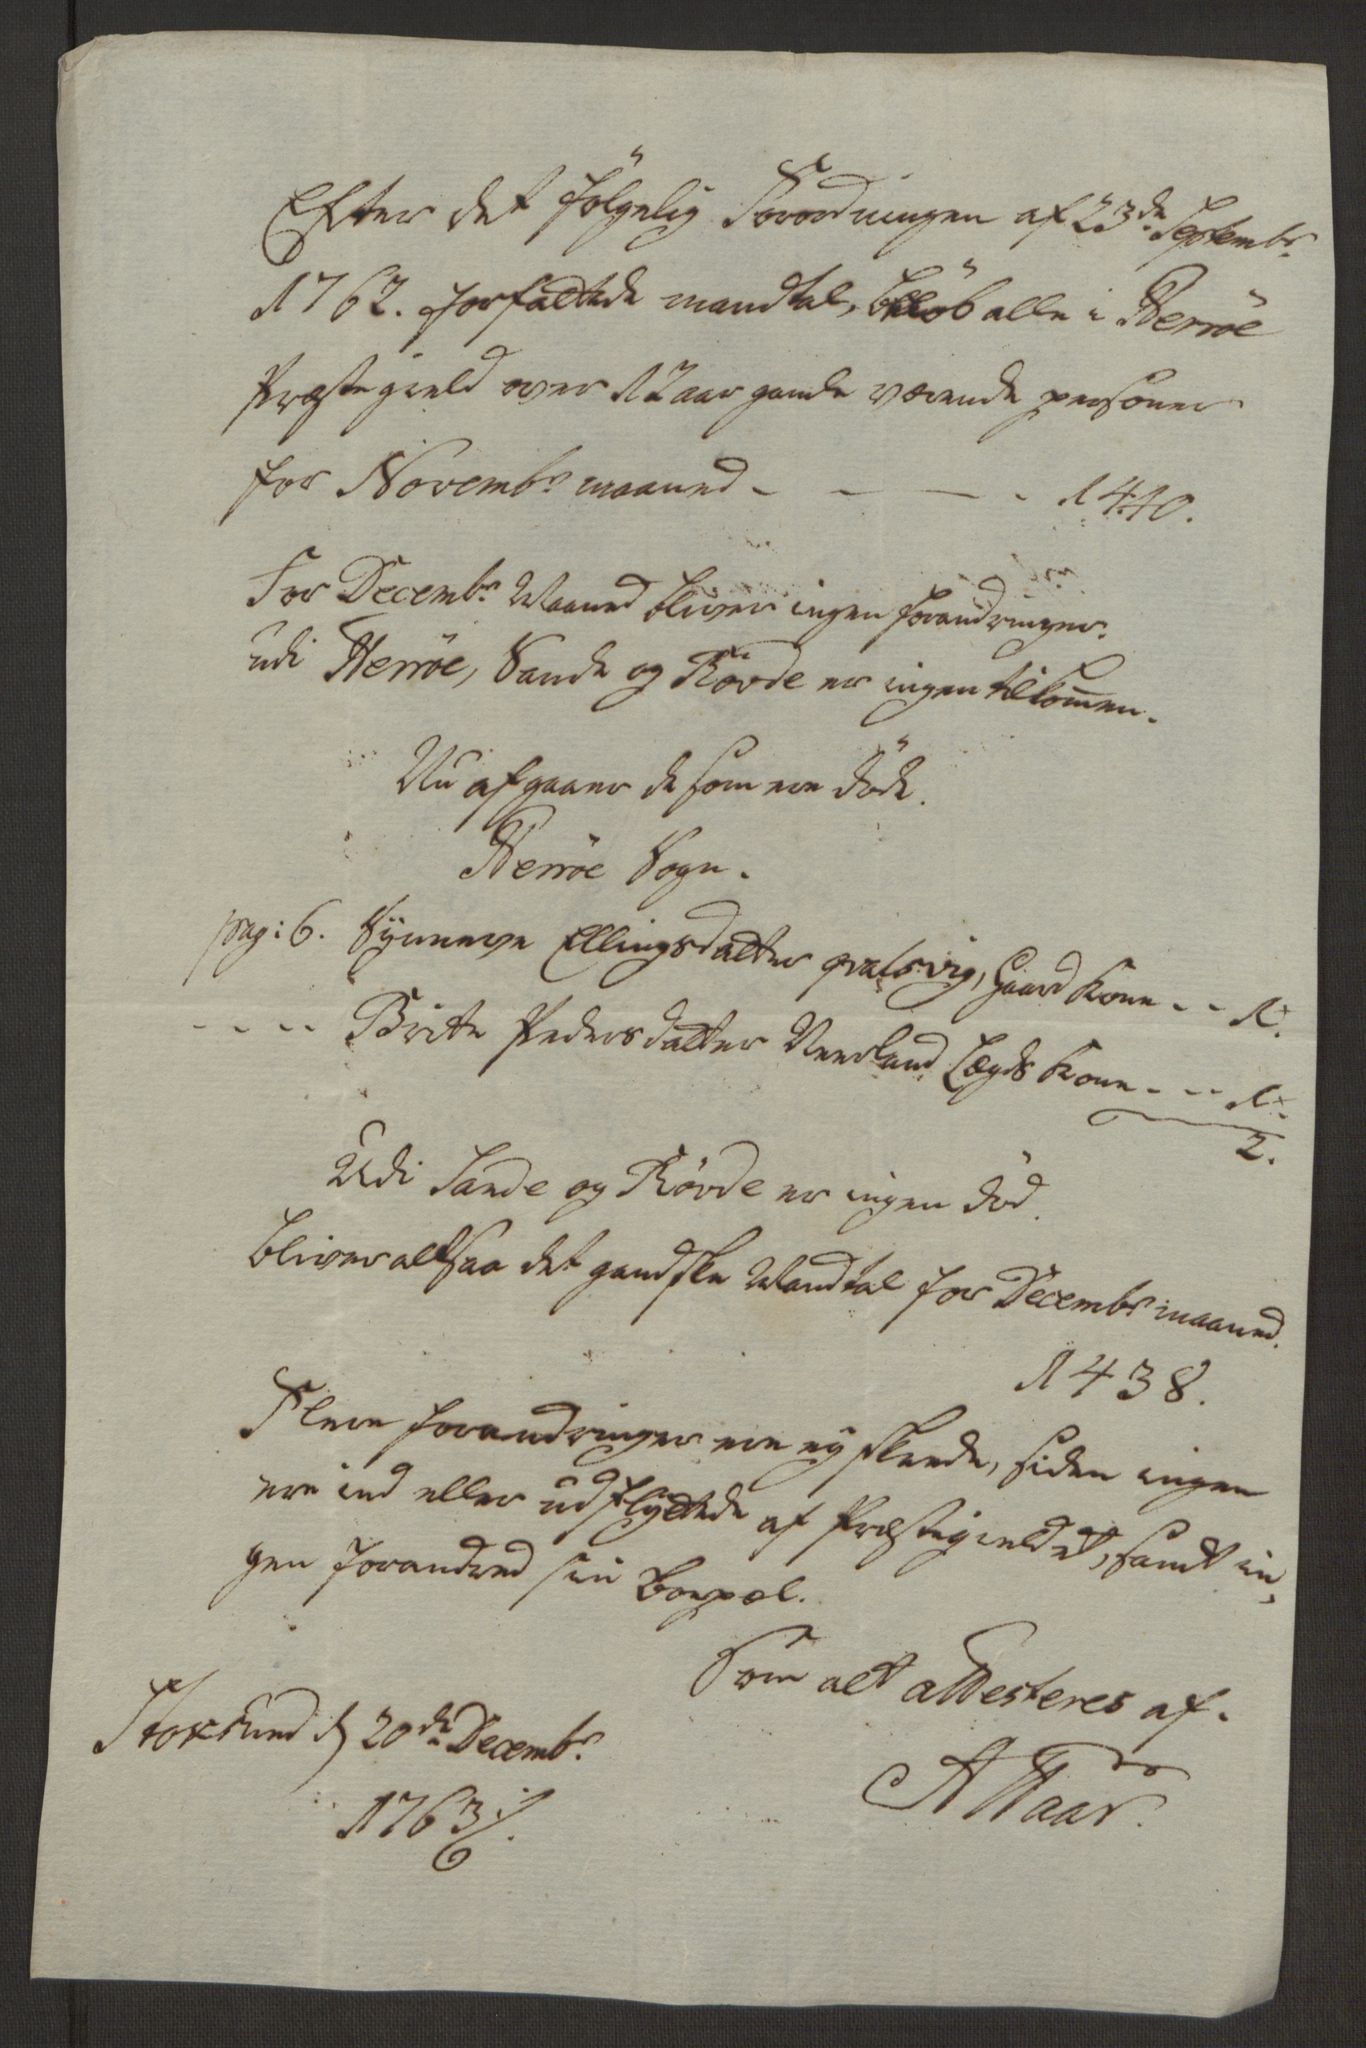 Efter det fölgelig Forordningen af 23de Septembr.
1762. forfattede mandtal, belöb alle i Herröe
Præstegield over 12 aar gamle værende personer
for Novembr. maaned - - - - 1440.
For Decembr. Maaned bliver ingen forandringer.
udi Herröe, Sande og Rövde er ingen tilkom̄en.
Nu afgaaer de som ere döde.
Herröe Sogn.
pag: 6. Synneve Ellingsdatter qvalsvig, Gaard Kone - - 1.
- - - - Brite Pedersdatter Neerland Lægds Kone - - - 1.
2.
Udi Sande og Rövde er ingen död.
bliver altsaa det gandske Mandtal for Decembr maaned.
1438.
Flere forandringer ere ey skeede, siden ingen
ere ind eller udflyttede af Præstegieldet, samt in,
gen forandred sin boepæl.
Som alt attesteres af.
Stoksund d 20de Decembr.
1763 ⁒.
A Haar.